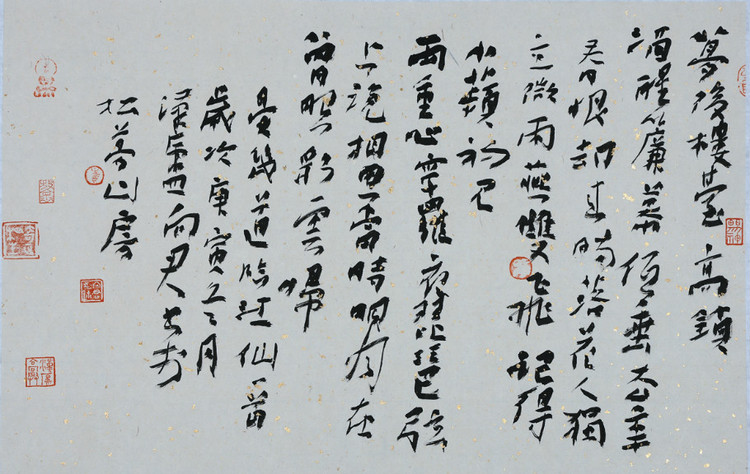 夢後樓臺高鎖
酒醒簾幕低垂去年
春恨卻來時落花人獨
立微雨燕雙飛記得
小蘋初見
兩重心字羅衣琵琶弦
上說相思當時明月在
曾照彩雲歸
晏幾道臨江仙一首
歲次庚寅五月
向書於
松山房